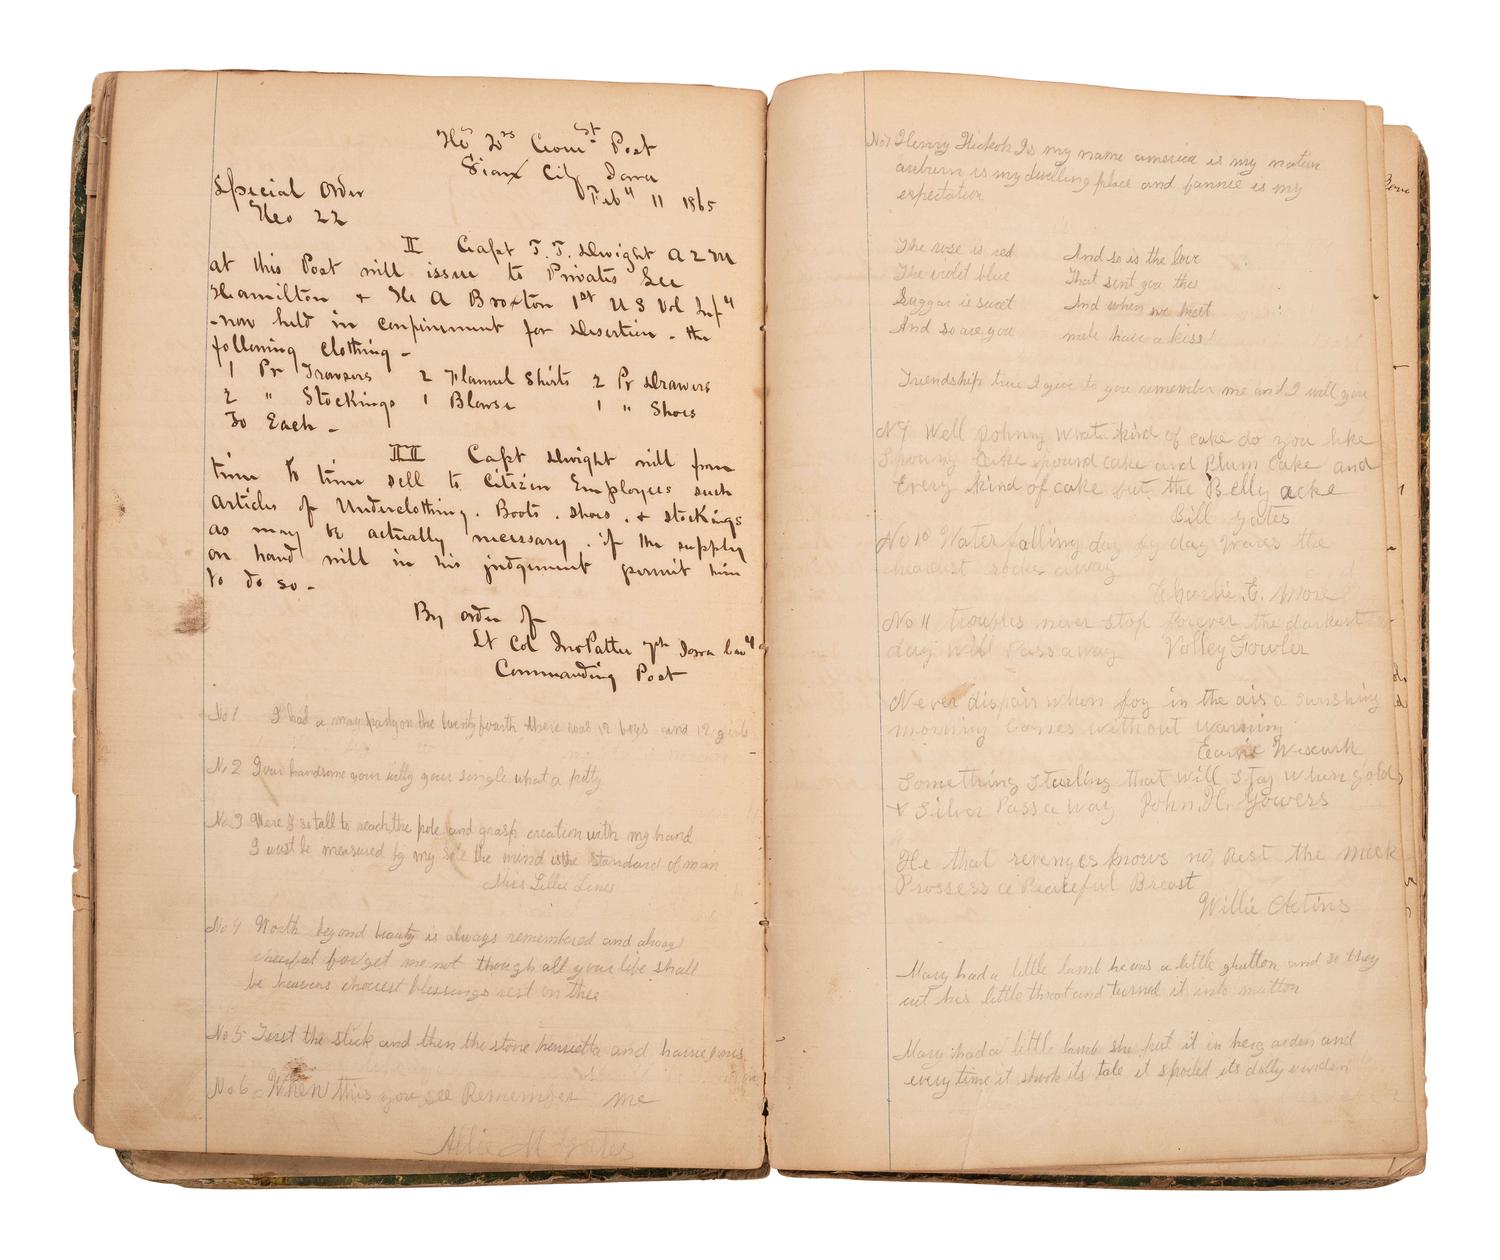 Hd Qrs Comst Post
Sioux City Iowa
Feby 11 1865
Special Order
No 22
II Capt T. T. Dwight A Q M
at this Post will issue to Privates Lee
Hamilton & H A Broxton 1st U S Vol Infy
-now held in confinement for desertion - the
following clothing -
1 Pr Trowsers 2 Flannel Shirts 2 Pr Drawers
2 " Stockings 1 Blouse 1 " Shoes
To Each -
III Capt Dwight will from
time to time sell to Citizen Employees such
articles of Underclothing. Boots. shoes. & stockings
as may be actually necessary. if the supply
on hand will in his judgement permit him
to do so -
By order of
Lt Col Jno Pattee 7th Iowa Cavy
Commanding Post
No 1 I had a may party on the twenty fourth there was 12 boys and 12 girls
No 2 Your handsome your witty your single what a pitty
No 3 Were I so tall to reach the pole and grasp creation with my hand
I must be measured by my the mind is the standard of man
Miss Lillie Lines
No 4 Worth beyond beauty is always remembered and always
cheerful forget me not though all your life shall
be heavens choicest blessings rest on thee
No 5 First the stick and then the stove henrietta and
No 6 When this you see Remember me
Allie M Yates
No 7 Henry Hickok Is my name america is my nation
auburn is my dwelling place and fannie is my
expectation
The rose is red And so is the love
The violet blue That sent you this
Suggar is sweet And when we meet
And so are you have a kiss!
Friendship true I give to you remember me and I will you
N 9 Well Johnny what kind of cake do you like
cake pound cake and Plum Cake and
Every kind of cake but the Belly acke
Bill Yates
No 10 Water falling day by day wares the
rocks away
Charlie. E. More
No 11 troubles never stop forever the darkest
day will Pass away Volley Fowler
Never dispair when fog in the air a sunshing
morning comes without warning
Something sturling that will stay when gold
& Silver Pass a way John H. Yowers
He that revenges knows no Rest the meek
Prossess a Peaceful Breast
Willie
Mary had a little lamb he was a little glutton and so they
cut his little throat and turned it into mutton
Mary had a little lamb she put it in her garden and
every time it shook its tale it spoiled its dolly varden